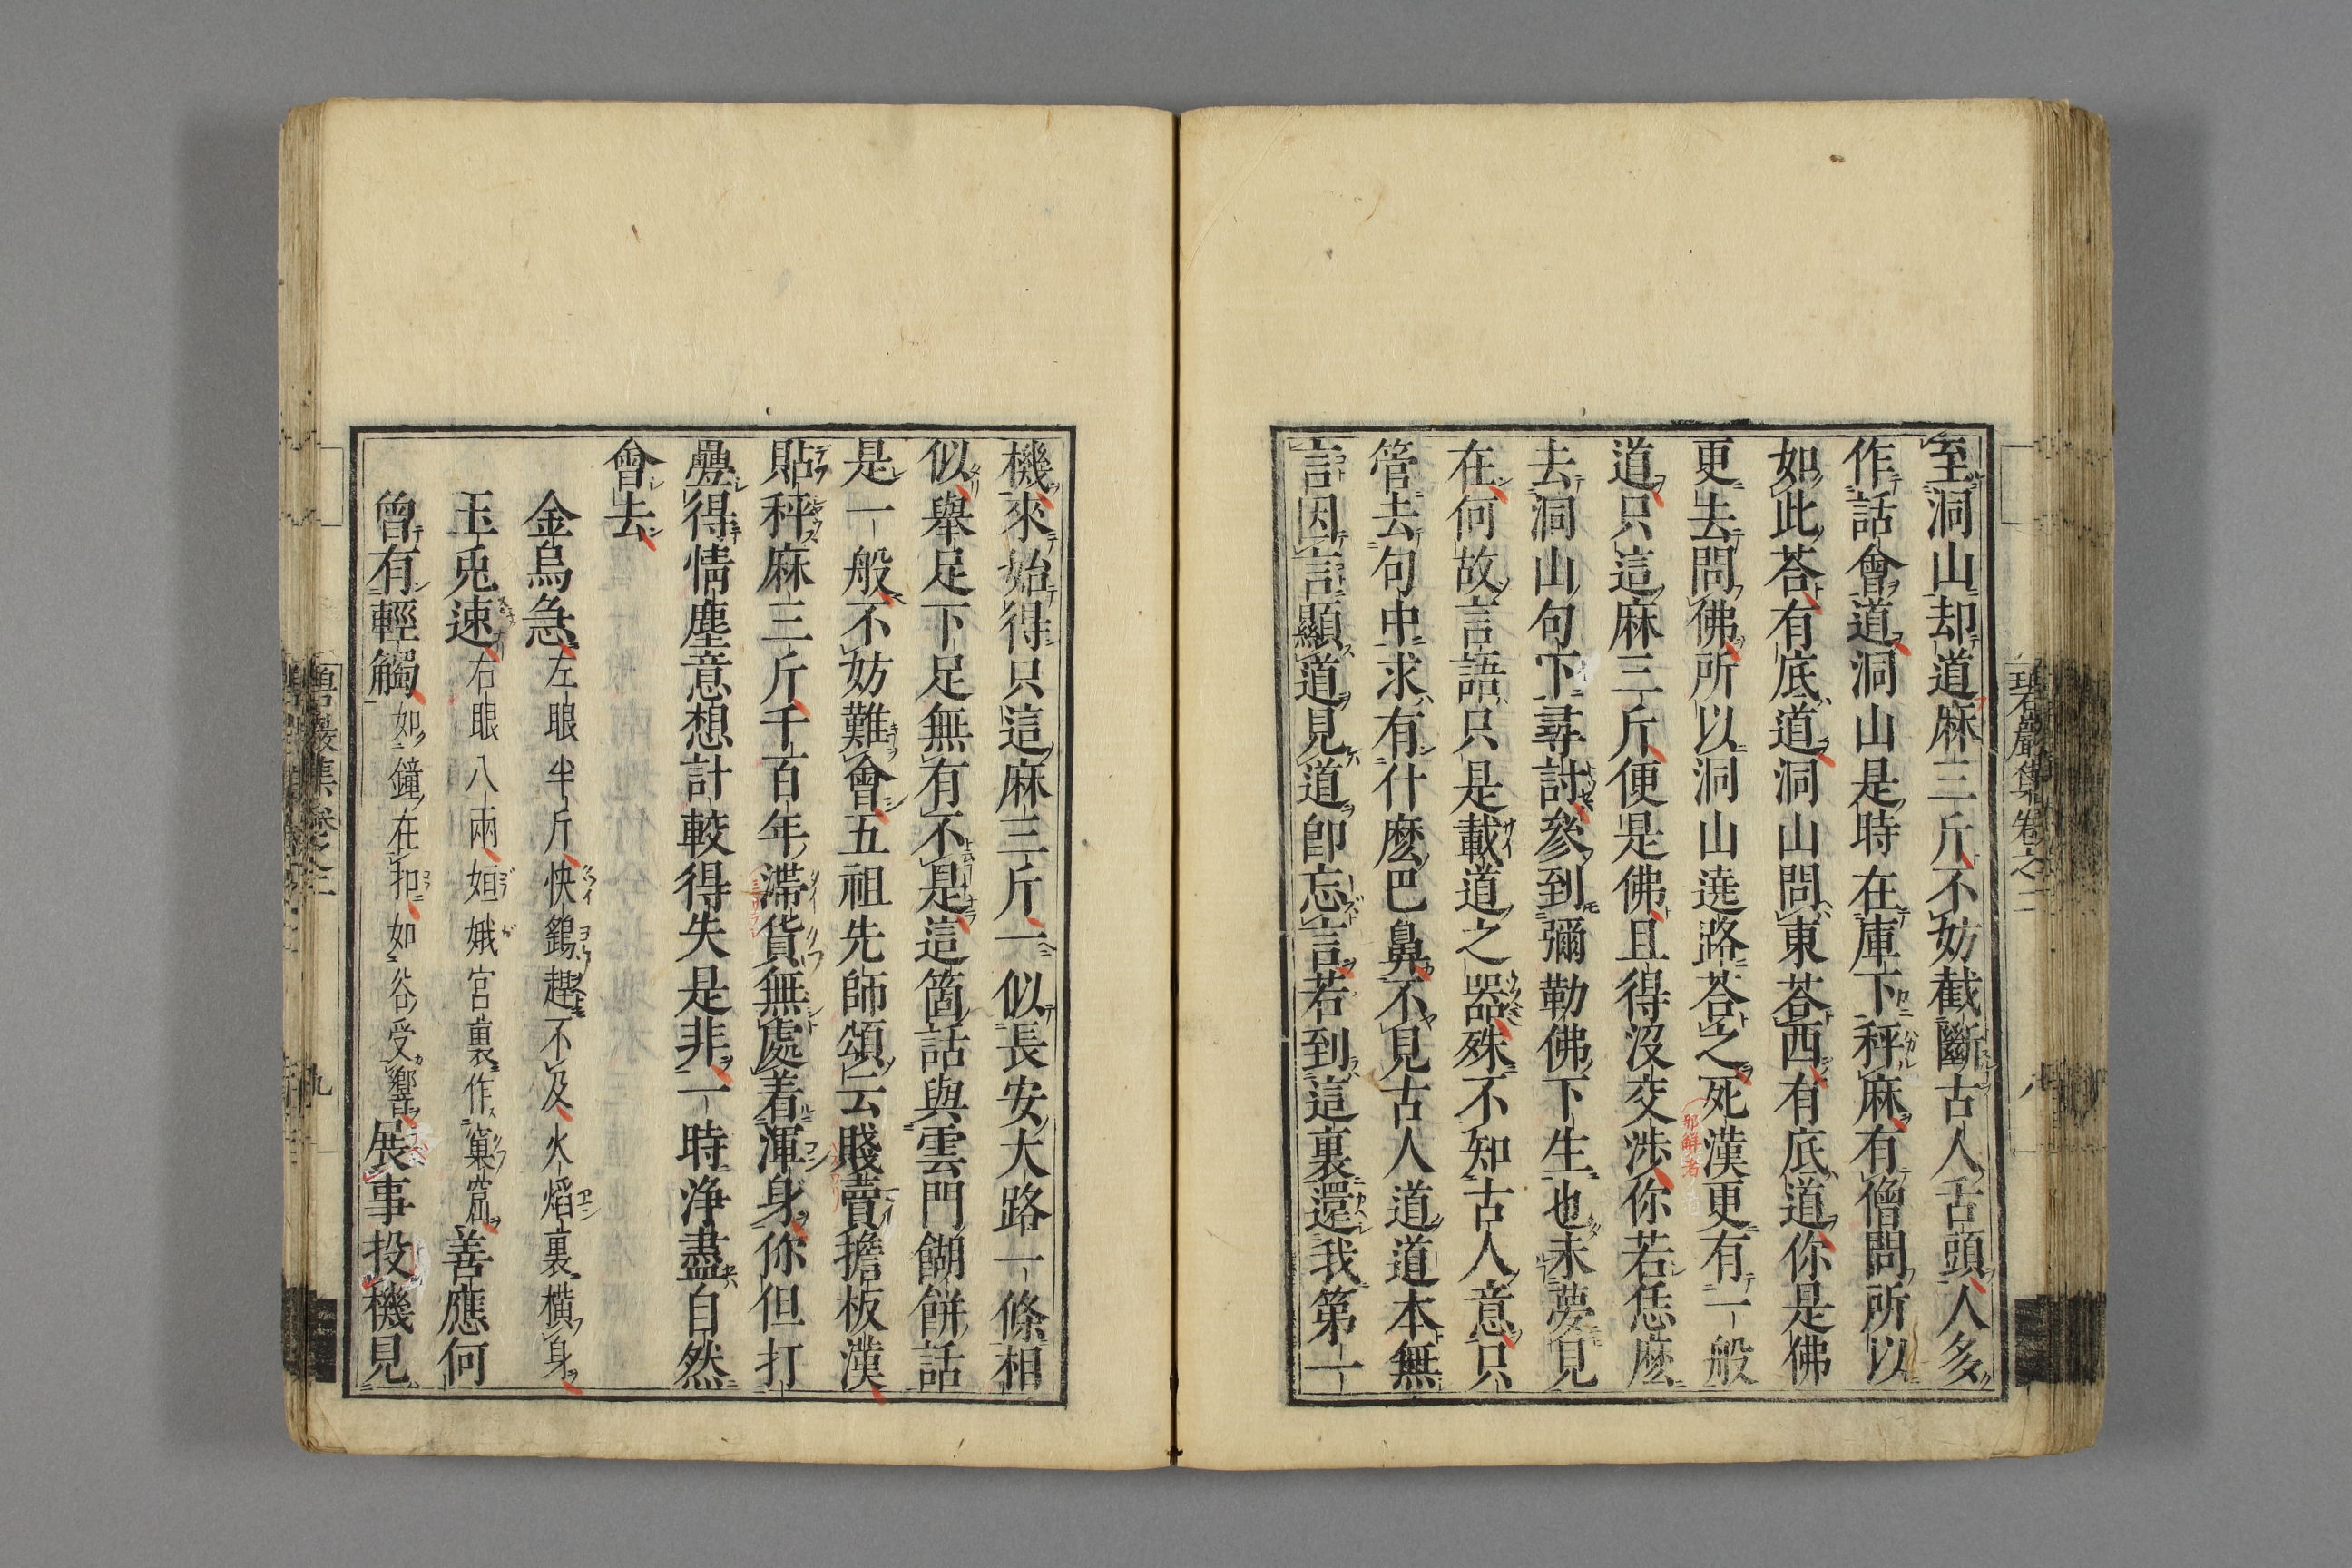 至洞山却道麻三斤不妨截斷古人舌頭人多
作話會道洞山是時在庫下秤麻有僧問所以
如此荅有底道洞山問東荅西有底道你是佛
更去問佛所以洞山遶路荅之死漢更有一般
道只這麻三斤便是佛且得沒交涉你若恁麽
去洞山句下尋討參到彌勒佛下生也未夢見
在何故言語只是載道之器殊不知古人意只
管去句中求有什麽巴鼻不見古人道道本無
言因言顯道見道卽忘言若到這裏還我第一
機來始得只這麻三斤一似長安大路一條相
似舉足下足無有不是這箇話與雲門餬餠話
是一般不妨難會五祖先師頌云賤賣擔板漢
貼秤麻三斤千百年滯貨無處着渾身你但打
疊得情塵意想計較得失是非一時淨盡自然
會去
金烏急左眼半斤快鷂趕不及火熖裏橫身
玉兎速右眼八兩姮娥宮裏作窠窟善應何
曾有輕觸如鐘在扣如谷受響展事投機見
碧巖集卷之二
八
碧巖集卷之二
九
那解者